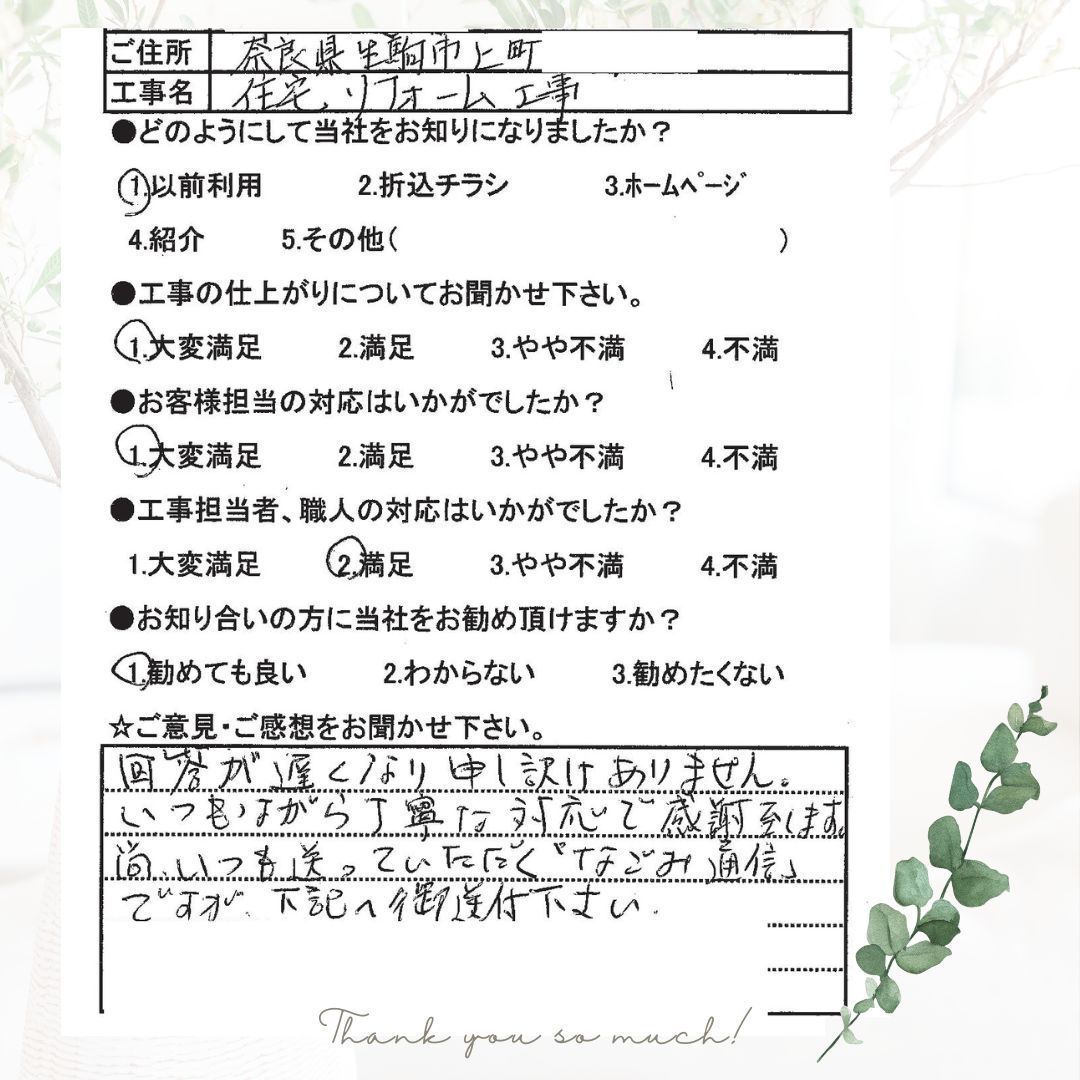 ご住所 奈良県生駒市上町
工事名 住宅リフォーム工事
●どのようにして当社をお知りになりましたか?
1.以前利用 2.折込チラシ 3.ホームページ
4.紹介 5.その他( )
●工事の仕上がりについてお聞かせ下さい。
1.大変満足 2.満足 3.やや不満 4.不満
●お客様担当の対応はいかがでしたか?
1.大変満足 2.満足 3.やや不満 4.不満
●工事担当者、職人の対応はいかがでしたか?
1.大変満足 2.満足 3.やや不満 4.不満
●お知り合いの方に当社をお勧め頂けますか?
1.勧めても良い 2.わからない 3.勧めたくない
☆ご意見・ご感想をお聞かせ下さい。
回答が遅くなり申し訳けありません。
いつもながら丁寧な対応で感謝至します。
尚、いつも送っていただく「なごみ通信」
ですが、下記へ御送付下さい.
Thank you so much!